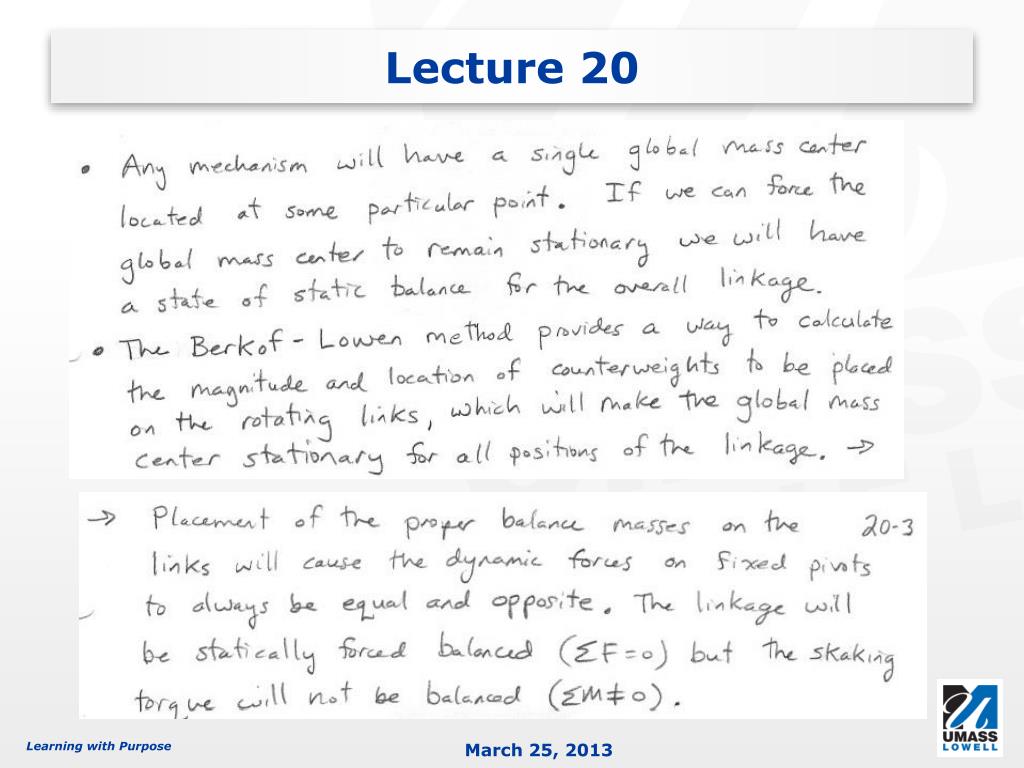 Lecture 20
• Any mechanism will have a single global mass center
located at some particular point. If we can force the
global mass center to remain stationary we will have
a state of static balance for the overall linkage.
• The Berkof-Lowen method provides a way to calculate
the magnitude and location of counterweights to be placed
on the rotating links, which will make the global mass
center stationary for all positions of the linkage. →
→ Placement of the proper balance masses on the 20-3
links will cause the dynamic forces on fixed pivots
to always be equal and opposite. The linkage will
be statically forced balanced (ΣF=0) but the skaking
torque will not be balanced (ΣM≠0).
UMASS
LOWELL
Learning with Purpose
March 25, 2013